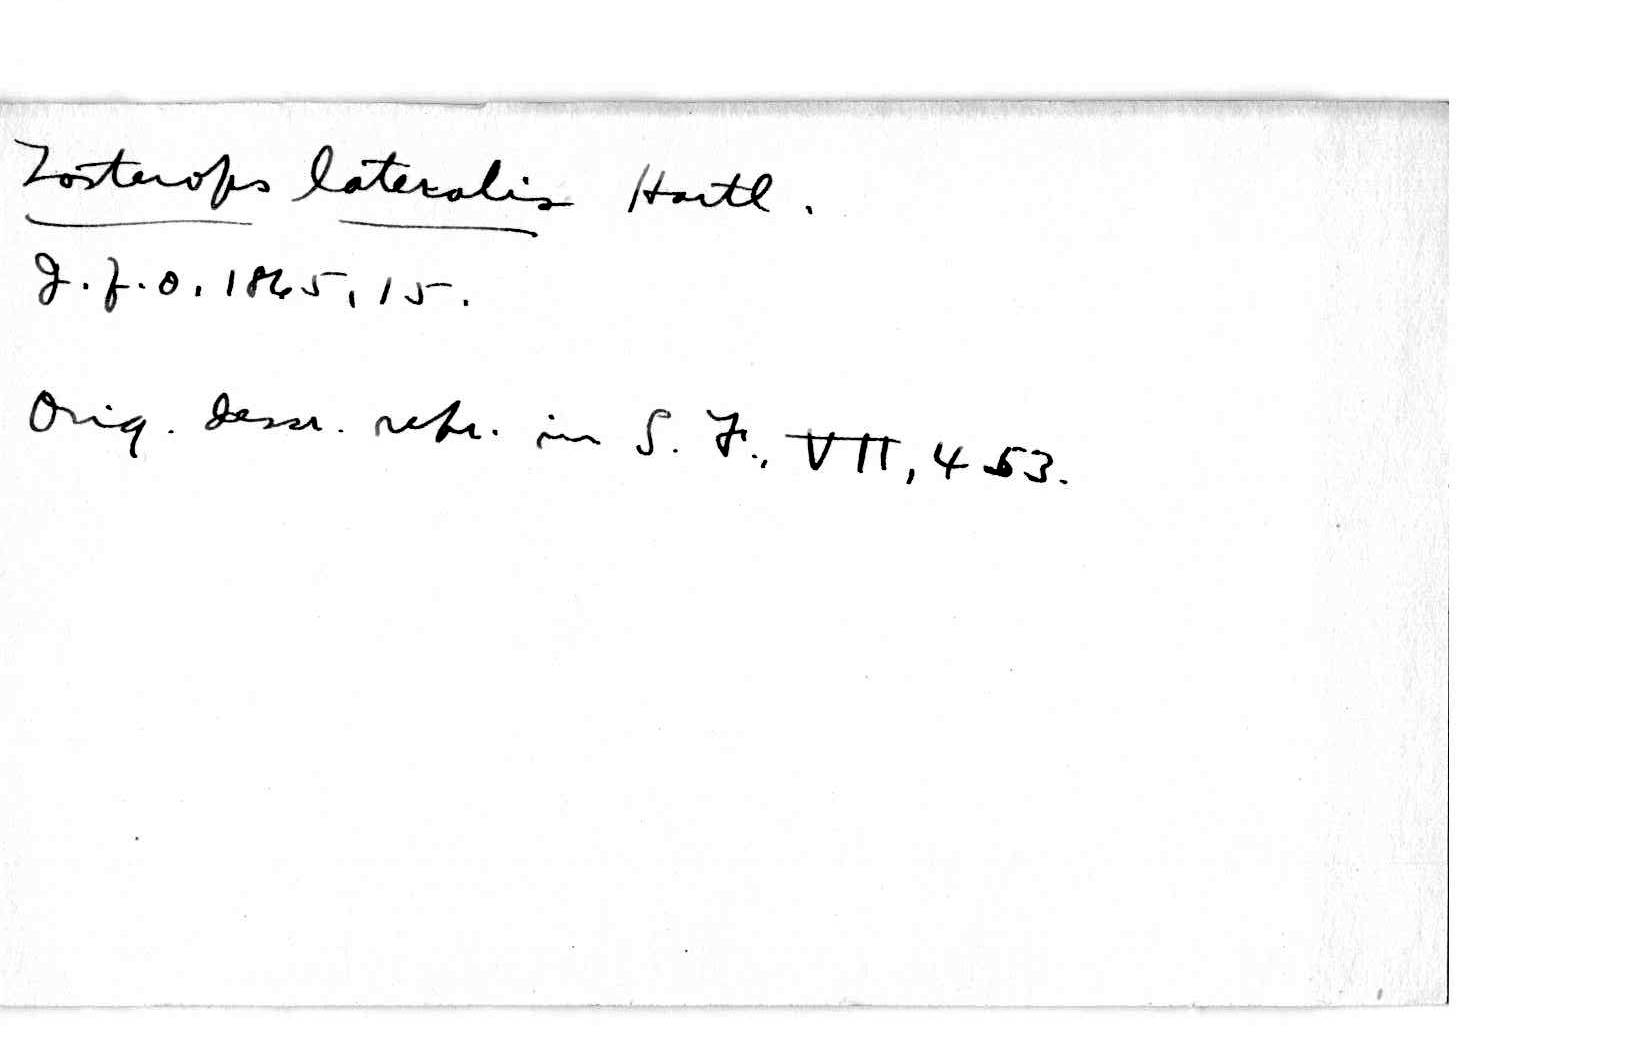 Zosterops lateralis Hartl.
J.f.O. 1865, 15.
Orig. descr. repr. in S. F., VII, 453.